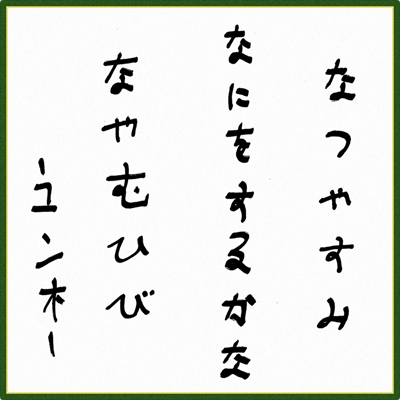 なつやすみ
なにをするかな
なやむひび
ーユンボー